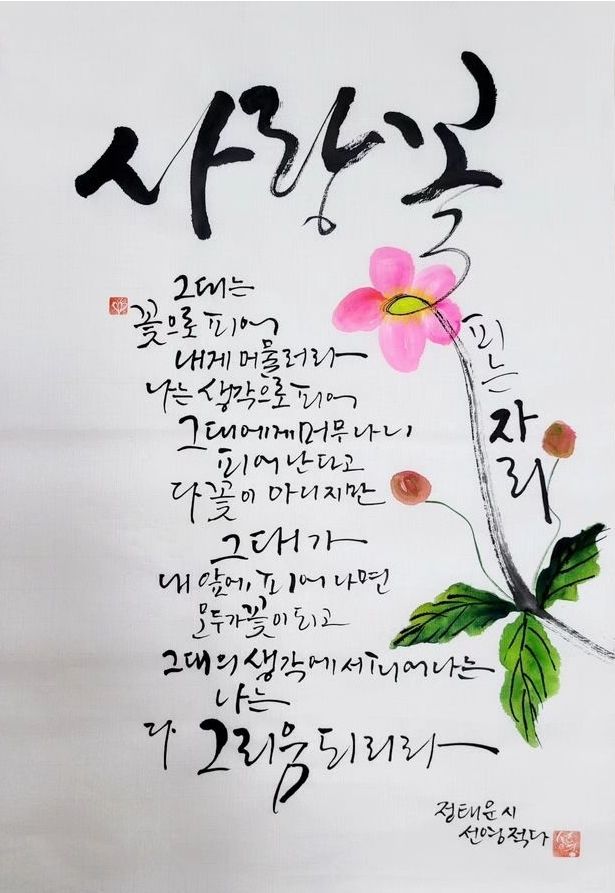 사랑 꽃
피는
자리
그대는
꽃으로 피어
내게 머물러라
나는 생각으로 피어
그대에게 머무나니
피어난다고
다 꽃이 아니지만
그대가
내 앞에 피어나면
모두가 꽃이 되고
그대의 생각에서 피어나는
나는
다 그리움 되리라
정태운 시
선영 적다